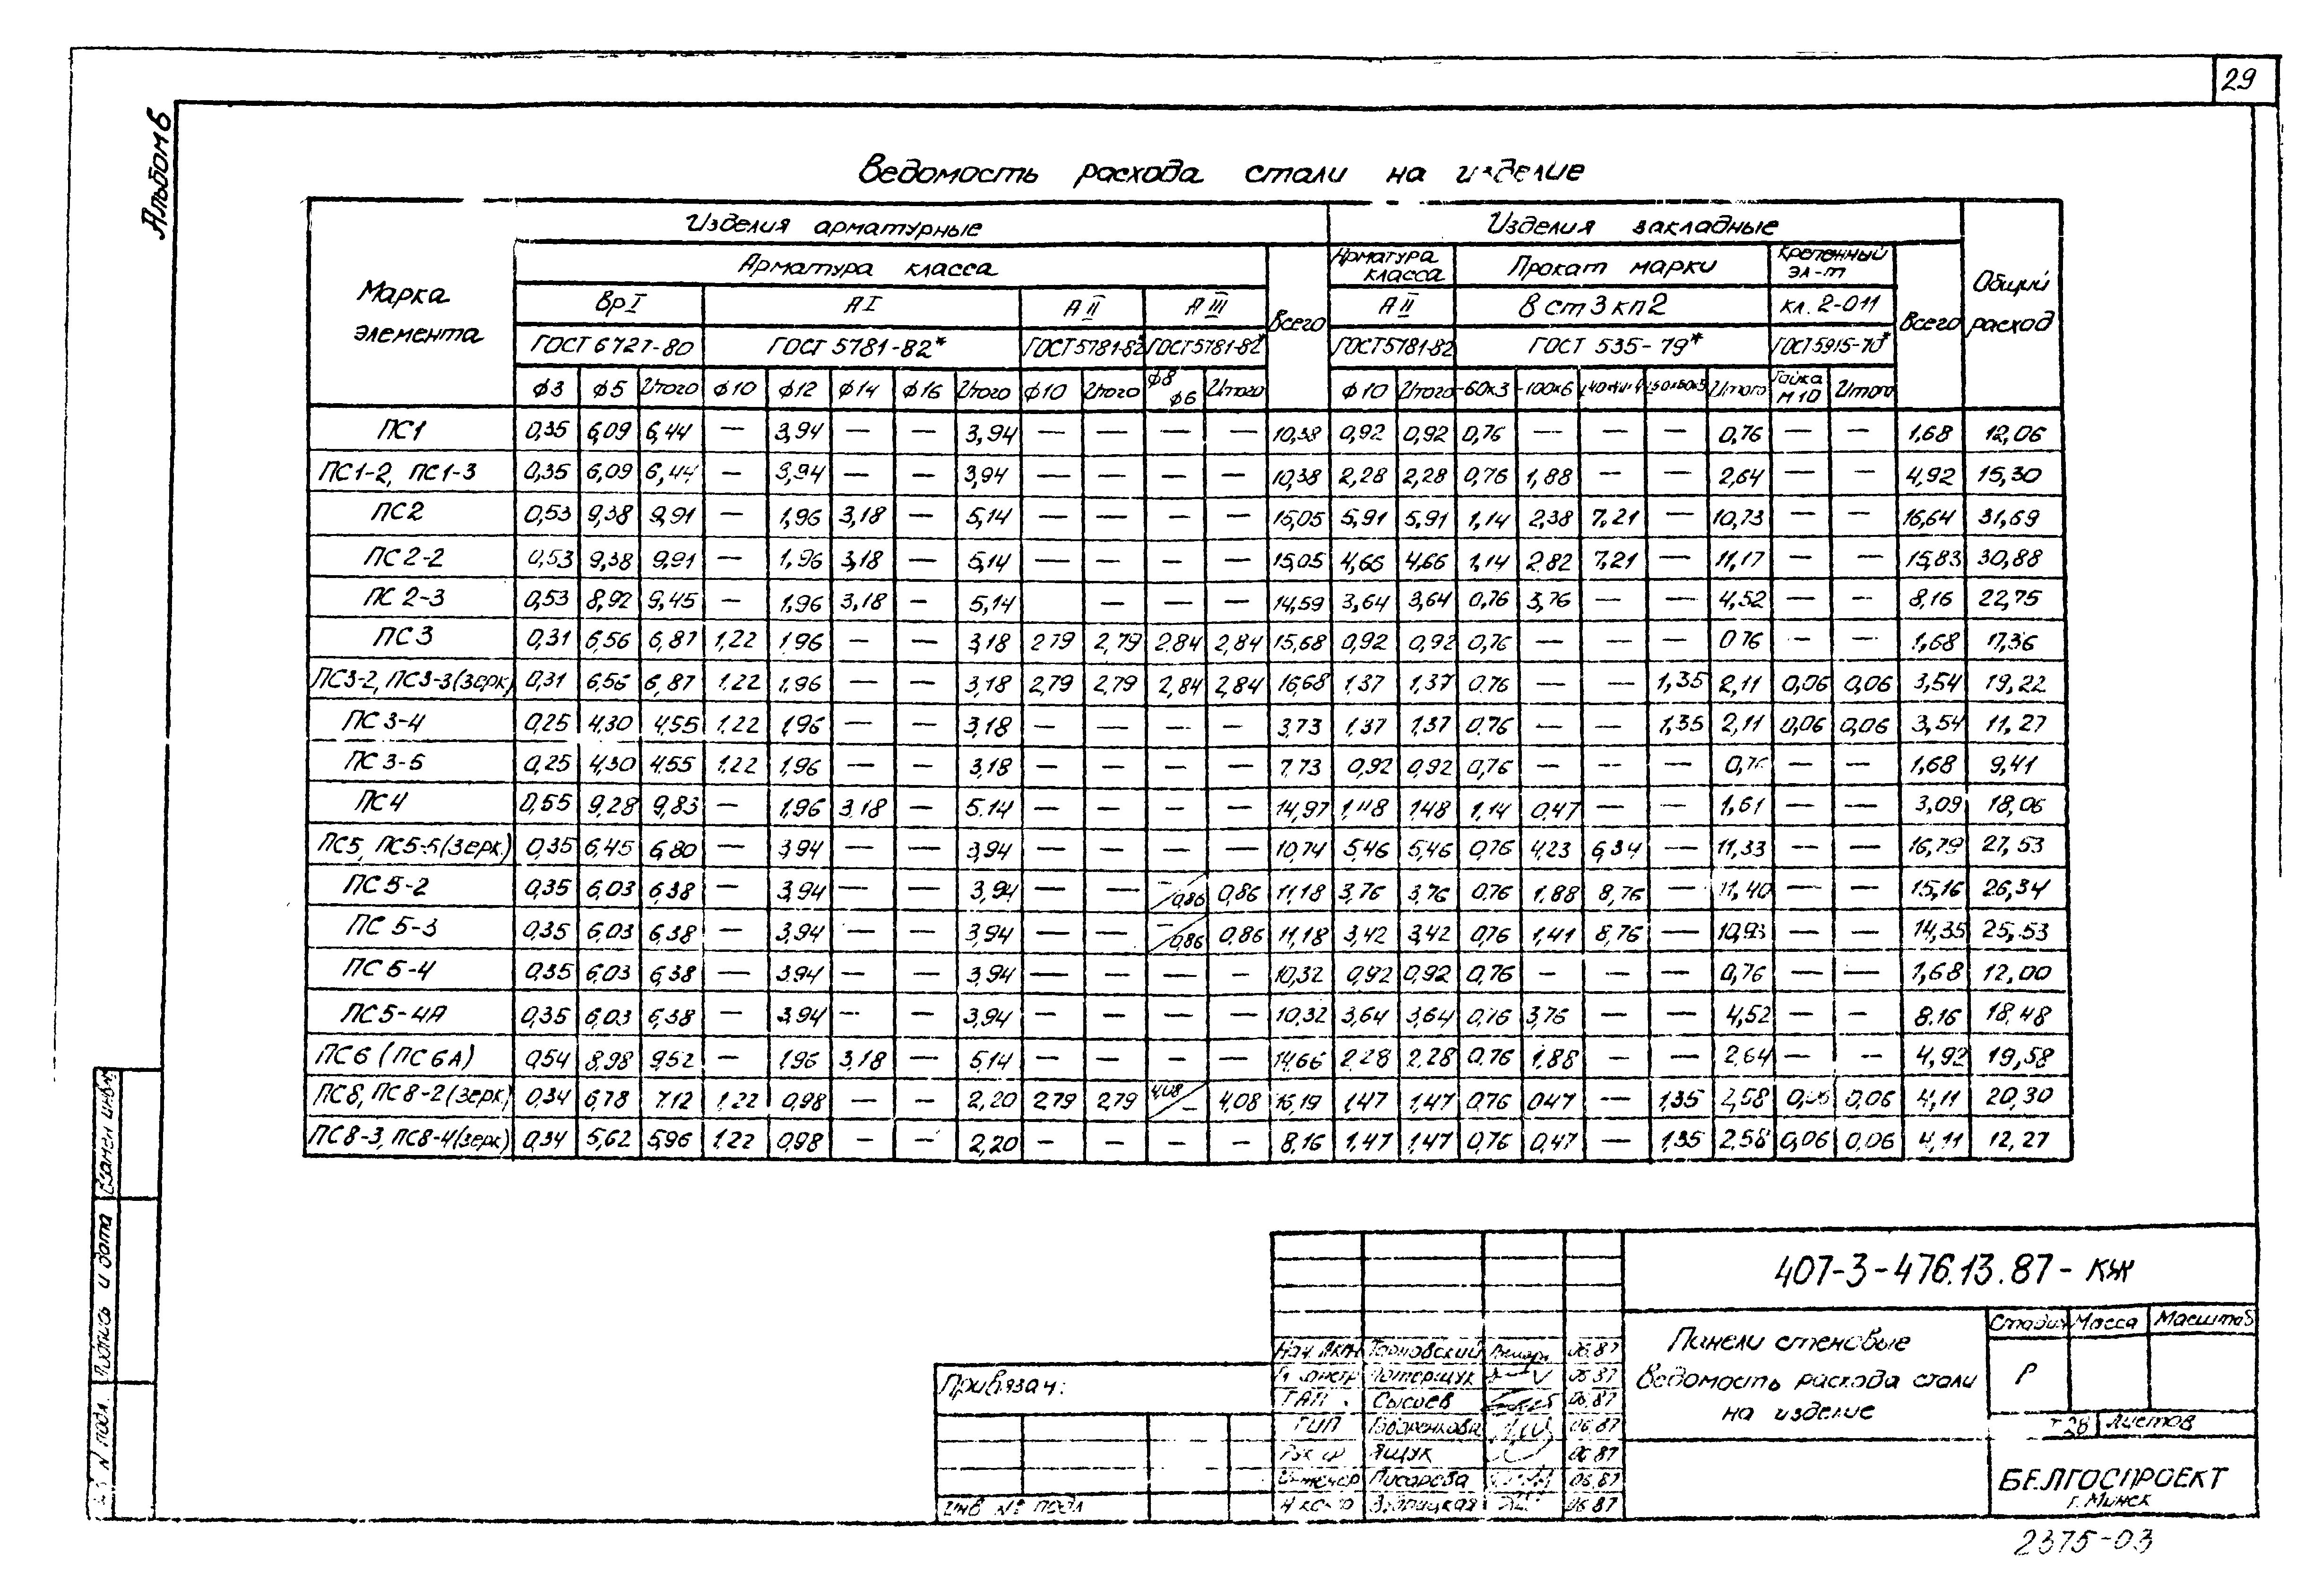 29
Альбом 6
Ведомость расхода стали на изделие
Марка элемента
Изделия арматурные
Изделия закладные
Общий расход
Арматура класса
Всего
Арматура класса
Прокат марки
Крепежный эл-т
Всего
Вр I
А I
А II
А III
А II
В ст 3 кп 2
кл. 2-011
ГОСТ 6727-80
ГОСТ 5781-82*
ГОСТ 5781-82*
ГОСТ 5781-82*
ГОСТ 5781-82
ГОСТ 535-79*
ГОСТ 5915-70*
ф3 ф5 Итого ф10 ф12 ф14 ф16 Итого ф10 Итого ф8 ф6 Итого ф10 Итого -60×3 -100×6 Итого Гайка М10 Итого
ПС1 0,35 6,09 6,44 — 3,94 — — 3,94 — — — — 10,38 0,92 0,92 0,76 — — — 0,76 — — 1,68 12,06
ПС1-2, ПС1-3 0,35 6,09 6,44 — 3,94 — — 3,94 — — — — 10,38 2,28 2,28 0,76 1,88 — — 2,64 — — 4,92 15,30
ПС2 0,53 9,38 9,91 — 1,96 3,18 — 5,14 — — — — 15,05 5,91 5,91 1,14 2,38 7,21 — 10,73 — — 16,64 31,69
ПС2-2 0,53 9,38 9,91 — 1,96 3,18 — 5,14 — — — — 15,05 4,66 4,66 1,14 2,82 7,21 — 11,17 — — 15,83 30,88
ПС2-3 0,53 8,92 9,45 — 1,96 3,18 — 5,14 — — — 14,59 3,64 3,64 0,76 3,76 — — 4,52 — — 8,16 22,75
ПС3 0,31 6,56 6,87 1,22 1,96 — — 3,18 2,79 2,79 2,84 2,84 15,68 0,92 0,92 0,76 — — — 0,76 — — 1,68 17,36
ПС3-2, ПС3-3(зерк) 0,31 6,56 6,87 1,22 1,96 — — 3,18 2,79 2,79 2,84 2,84 16,68 1,37 1,37 0,76 — — 1,35 2,11 0,06 0,06 3,54 19,22
ПС3-4 0,25 4,30 4,55 1,22 1,96 — — 3,18 — — — — 3,73 1,37 1,37 0,76 — — 1,35 2,11 0,06 0,06 3,54 11,27
ПС3-5 0,25 4,30 4,55 1,22 1,96 — — 3,18 — — — — 7,73 0,92 0,92 0,76 — — — 0,76 — — 1,68 9,41
ПС4 0,55 9,28 9,83 — 1,96 3,18 — 5,14 — — — — 14,97 1,48 1,48 1,14 0,47 — — 1,61 — — 3,09 18,06
ПС5, ПС5-5(зерк.) 0,35 6,45 6,80 — 3,94 — — 3,94 — — — — 10,74 5,46 5,46 0,76 4,23 6,34 — 11,33 — — 16,79 27,53
ПС5-2 0,35 6,03 6,38 — 3,94 — — 3,94 — — —/0,86 0,86 11,18 3,76 3,76 0,76 1,88 8,76 — 11,40 — — 15,16 26,34
ПС5-3 0,35 6,03 6,38 — 3,94 — — 3,94 — — —/0,86 0,86 11,18 3,42 3,42 0,76 1,41 8,76 — 10,93 — — 14,35 25,53
ПС5-4 0,35 6,03 6,38 — 3,94 — — 3,94 — — — — 10,32 0,92 0,92 0,76 — — — 0,76 — — 1,68 12,00
ПС5-4А 0,35 6,03 6,38 — 3,94 — — 3,94 — — — — 10,32 3,64 3,64 0,76 3,76 — — 4,52 — — 8,16 18,48
ПС6 (ПС6А) 0,54 8,98 9,52 — 1,96 3,18 — 5,14 — — — — 14,66 2,28 2,28 0,76 1,88 — — 2,64 — — 4,92 19,58
ПС8, ПС8-2(зерк) 0,34 6,78 7,12 1,22 0,98 — — 2,20 2,79 2,79 4,08/— 4,08 16,19 1,47 1,47 0,76 0,47 — 1,35 2,58 0,06 0,06 4,11 20,30
ПС8-3, ПС8-4(зерк) 0,34 5,62 5,96 1,22 0,98 — — 2,20 — — — — 8,16 1,47 1,47 0,76 0,47 — 1,35 2,58 0,06 0,06 4,11 12,27
Взамен инв.№
Подпись и дата
N подл.
407-3-476.13.87-КЖ
Панели стеновые
Ведомость расхода стали
на изделие
Стадия Масса Масштаб
Р
28 Листов
БЕЛГОСПРОЕКТ
г. Минск
Привязан:
Инв № подл
Нач. АКМ Тарновский 06.87
06.87
ГАП Сысоев 06.87
ГИП 06.87
Ящук 06.87
Инженер Писарева 06.87
Н контр 06.87
2375-03